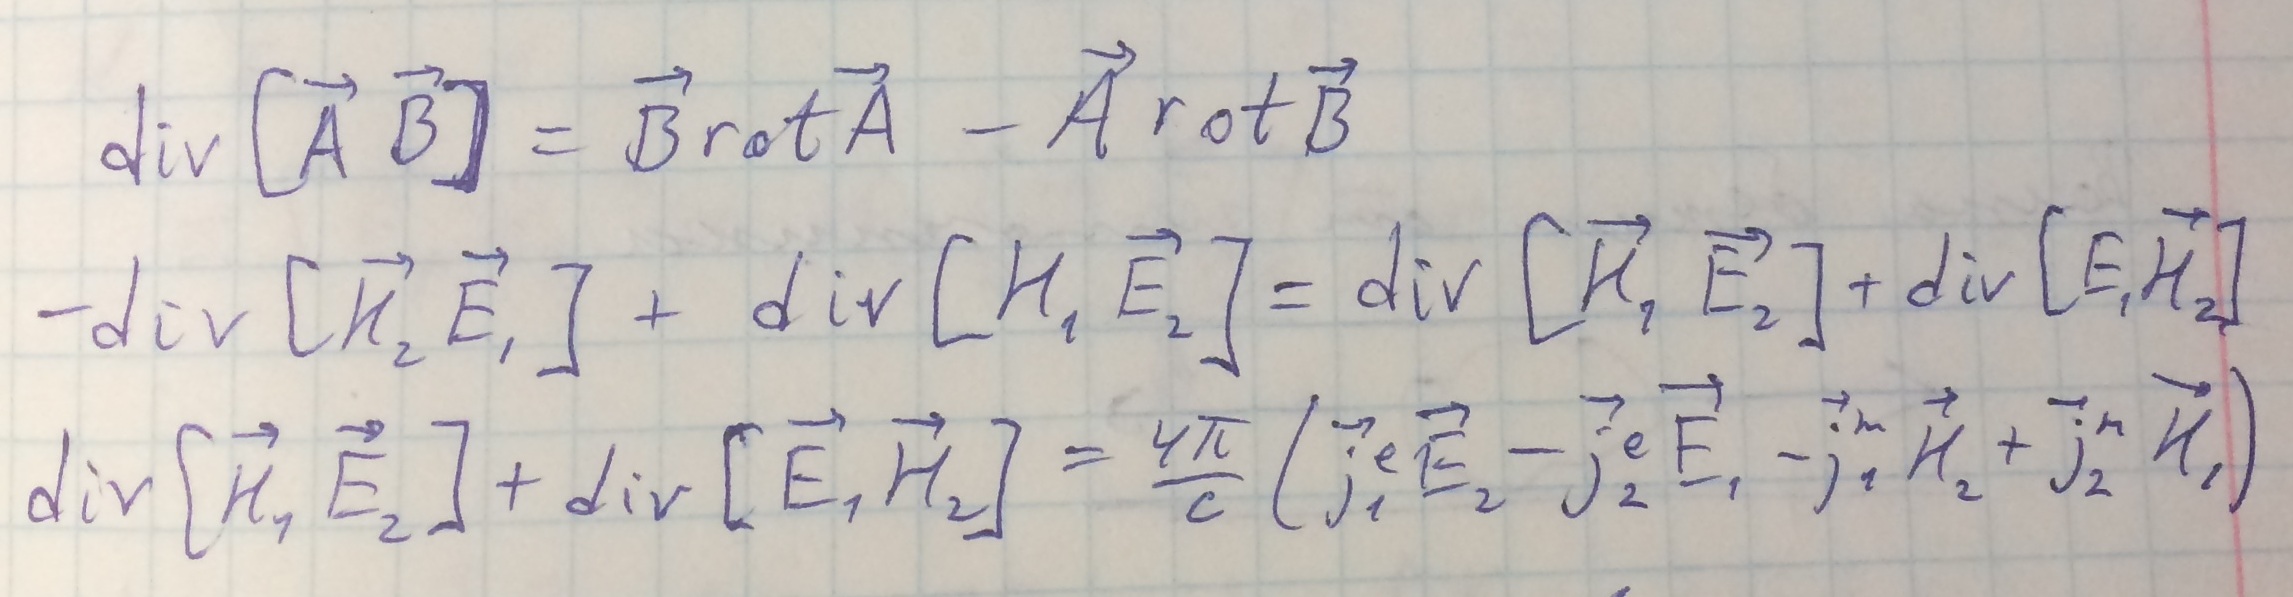 div [A⃗ B⃗] = B⃗ rot A⃗ − A⃗ rot B⃗
−div [H⃗₂ E⃗₁] + div [H₁ E⃗₂] = div [H⃗₁ E⃗₂] + div [E₁ H⃗₂]
div [H⃗₁ E⃗₂] + div [E⃗₁ H⃗₂] = 4π/c (j⃗₁ᵉ E⃗₂ − j⃗₂ᵉ E⃗₁ − j⃗₁ᵐ H⃗₂ + j⃗₂ᵐ H⃗₁)